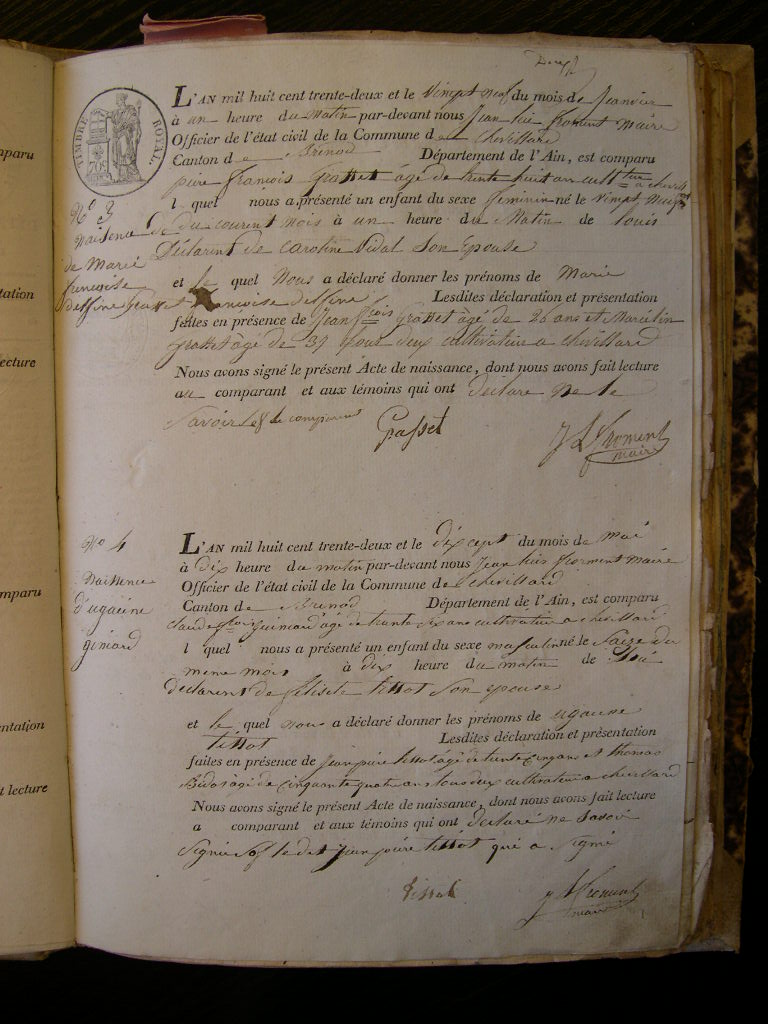 TIMBRE ROYAL
70c
L'AN mil huit cent trente-deux et le vingt neuf du mois de Jeanvier
à un heure du Matin par-devant nous Jean Luis froment Maire
Officier de l'état civil de la Commune de chevillard
Canton de Brenod Département de l'Ain, est comparu
piere francois grasset âgé de trente huit an cultteur a chevill
l quel nous a présenté un enfant du sexe feminin né le vingt neuf
du courent mois à un heure du Matin de louis
Déclarent de caroline Vidal Son Epouse
et le quel Nous a déclaré donner les prénoms de Marie
francoise delfine Lesdites déclaration et présentation
faites en présence de Jean fcois grasset âgé de 26 ans et Marcelin
grasset âgé de 37 tous deux cultivateur a chevillard
Nous avons signé le présent Acte de naissance, dont nous avons fait lecture
au comparant et aux témoins qui ont declare ne le
Savoir le comparent
Grasset
J L Froment
maire
No 3
naisence
de Marie
francoise
delfine grasset
L'AN mil huit cent trente-deux et le dix cept du mois de mai
à dix heure du matin par-devant nous Jean luis froment maire
Officier de l'état civil de la Commune de chevillard
Canton de Brenod Département de l'Ain, est comparu
guiniard âgé de trante six ans cultivateur a chevillard
l quel nous a présenté un enfant du sexe masculin né le Saize du
meme mois à dix heure du matin de
declarent de felisite tissot Son epouse
et le quel nous a déclaré donner les prénoms de ugaune
tissot Lesdites déclaration et présentation
faites en présence de Jean piere tissot âgé de trente cinq ans et thomas
âgé de cinquante quatre ans tous deux cultivateur a chevillard
Nous avons signé le présent Acte de naissance, dont nous avons fait lecture
a comparant et aux témoins qui ont declaré ne Savoir
Signié Sof le dit Jean piere tissot qui a Signé
tissot
J L froment
maire
No 4
naissence
d'ugaune
giniard
mparu
tation
ecture
mparu
ntation
t lecture